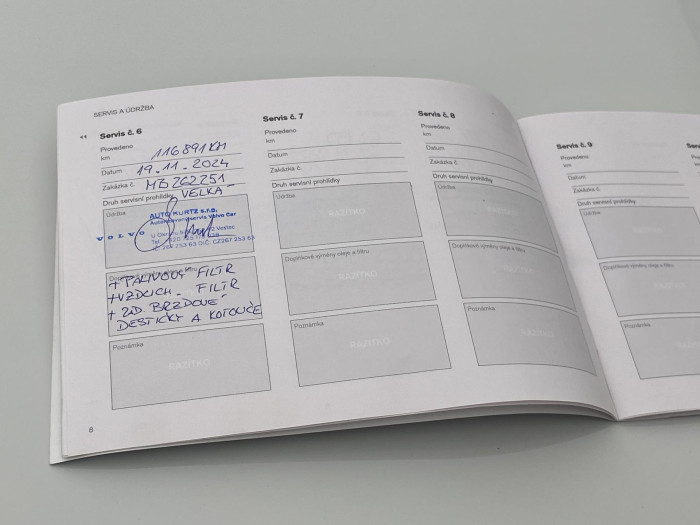 SERVIS A ÚDRŽBA
Servis č. 6
Provedeno
km 116 891 KM
Datum 19.11.2024
Zakázka č. MB262251
Druh servisní prohlídky VELKÁ
Údržba
AUTO KURTZ s.r.o.
Autorizovaný servis Volvo Car
VOLVO
Doplňkové výměny oleje a filtru
+ PALIVOVÝ FILTR
+ VZDUCH. FILTR
+ ZAD. BRZDOVÉ
DESTIČKY A KOTOUČE
Poznámka
RAZÍTKO
8
Servis č. 7
Provedeno
km
Datum
Zakázka č.
Druh servisní prohlídky
Údržba
RAZÍTKO
Doplňkové výměny oleje a filtru
RAZÍTKO
Poznámka
RAZÍTKO
Servis č. 8
Provedeno
km
Datum
Zakázka č.
Druh servisní prohlídky
Údržba
Doplňkové výměny oleje a filtru
Poznámka
Servis č. 9
Provedeno
km
Datum
Zakázka č.
Druh servisní prohlídky
Údržba
Doplňkové výměny oleje a filtru
Poznámka